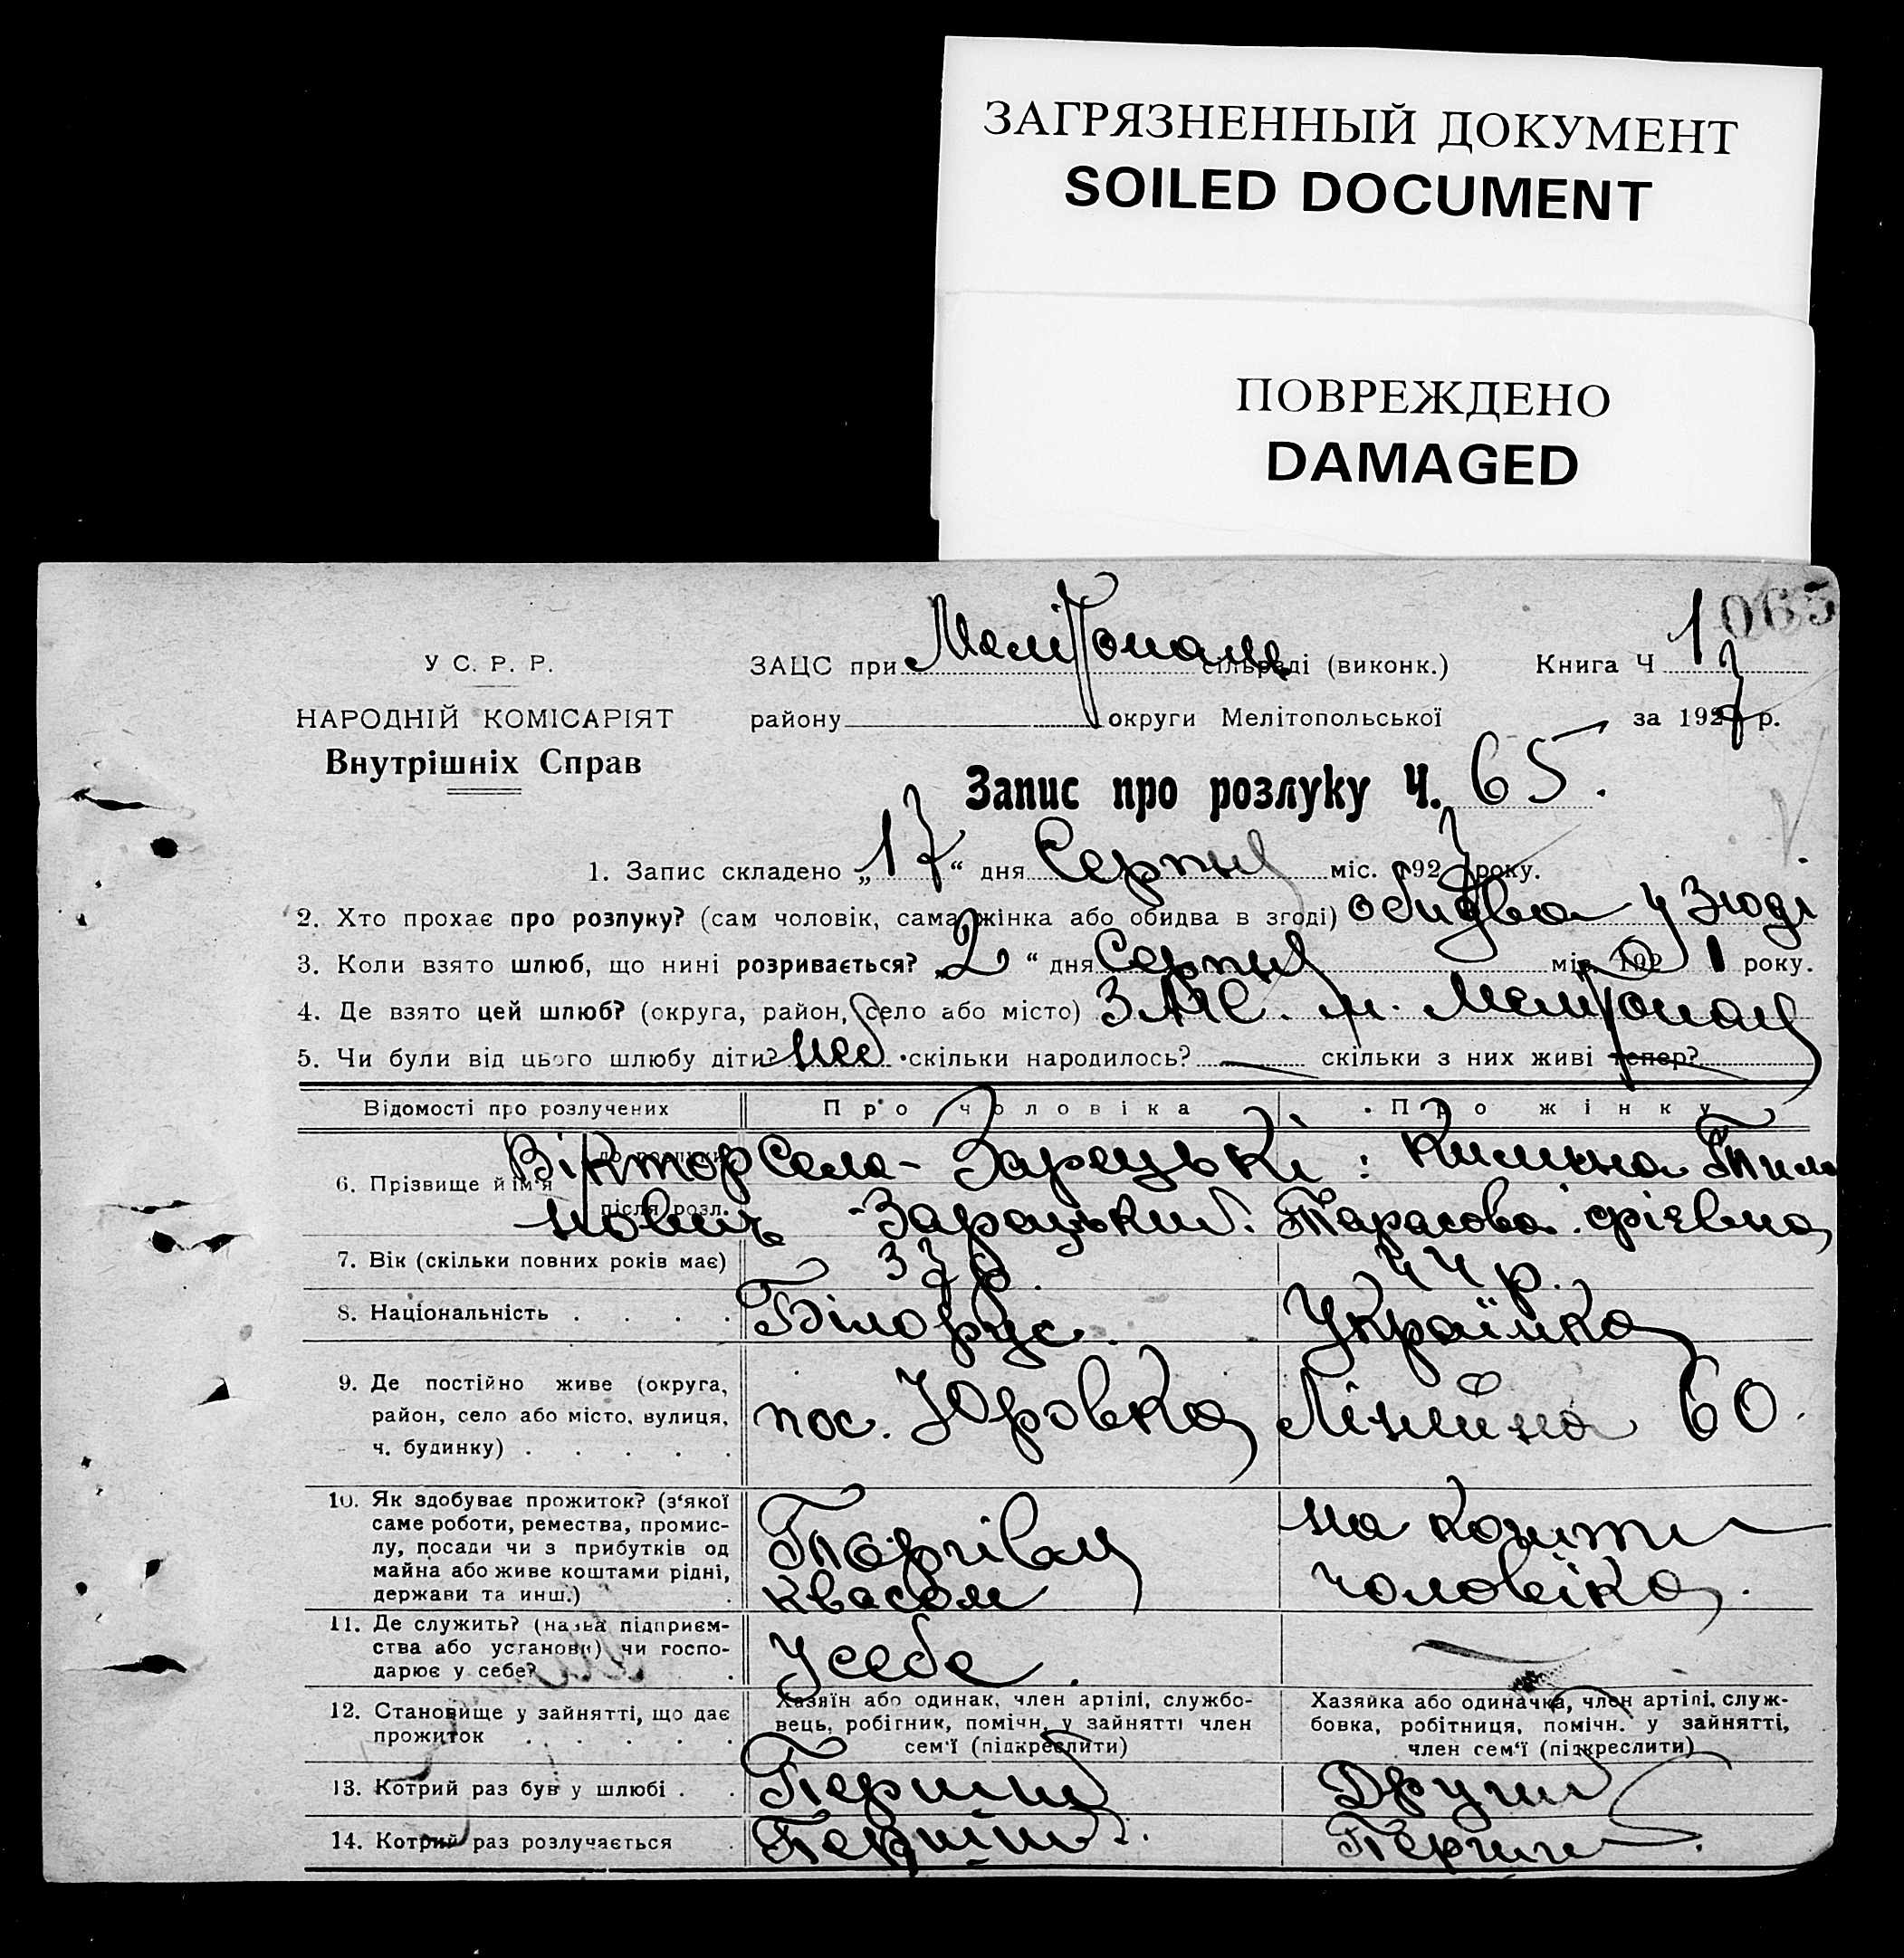 ЗАГРЯЗНЕННЫЙ ДОКУМЕНТ
SOILED DOCUMENT
ПОВРЕЖДЕНО
DAMAGED
065
У С. Р. Р.
НАРОДНІЙ КОМІСАРІЯТ
Внутрішніх Справ
ЗАЦС при Мелітополь сільраді (виконк.) Книга Ч 1
району округи Мелітопольської за 1927 р.
Запис про розлуку Ч. 65.
1. Запис складено „17“ дня Серпня міс. 1927 року.
2. Хто прохає про розлуку? (сам чоловік, сама жінка або обидва в згоді) обидва у згоді
3. Коли взято шлюб, що нині розривається? 2 “ дня Серпня міс. 192 1 року.
4. Де взято цей шлюб? (округа, район, село або місто) ЗАГС. м. Мелітополь
5. Чи були від цього шлюбу діти? скільки народилось? — скільки з них живі тепер?
Відомості про розлучених Про чоловіка Про жінку
6. Прізвище й ім'я до розлуки Віктор Зарецькі:
після розл. -Зарецький. Тарасова.
7. Вік (скільки повних років має) 37 р. 44 р.
8. Національність . . . . Білорус. Українка
9. Де постійно живе (округа, район, село або місто, вулиця, ч. будинку) . . . . . пос. Юровка Лінійна 60.
10. Як здобуває прожиток? (з'якої саме роботи, ремества, промислу, посади чи з прибутків од майна або живе коштами рідні, держави та инш.) Торгівля квасом на кошти чоловіка.
11. Де служить? (назва підприємства або установи) чи господарює у себе? У себе. —
12. Становище у зайнятті, що дає прожиток . . . . .
Хазяїн або одинак, член артілі, службовець, робітник, помічн. у зайнятті член сем'ї (підкреслити)
Хазяйка або одиначка, член артілі, службовка, робітниця, помічн. у зайнятті, член сем'ї (підкреслити)
13. Котрий раз був у шлюбі . . Перший Другий
14. Котрий раз розлучається . Перший. Перший.